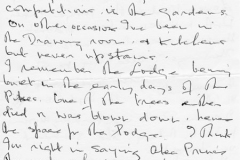 competitions in the Gardens.
On other occasions I've been in
the Drawing room & Kitchens
but never upstairs.
I remember the Lodge being
built in the early days of the
One of the trees either
died or was blown down. hence
the space for the Lodge. I think
I'm right in saying